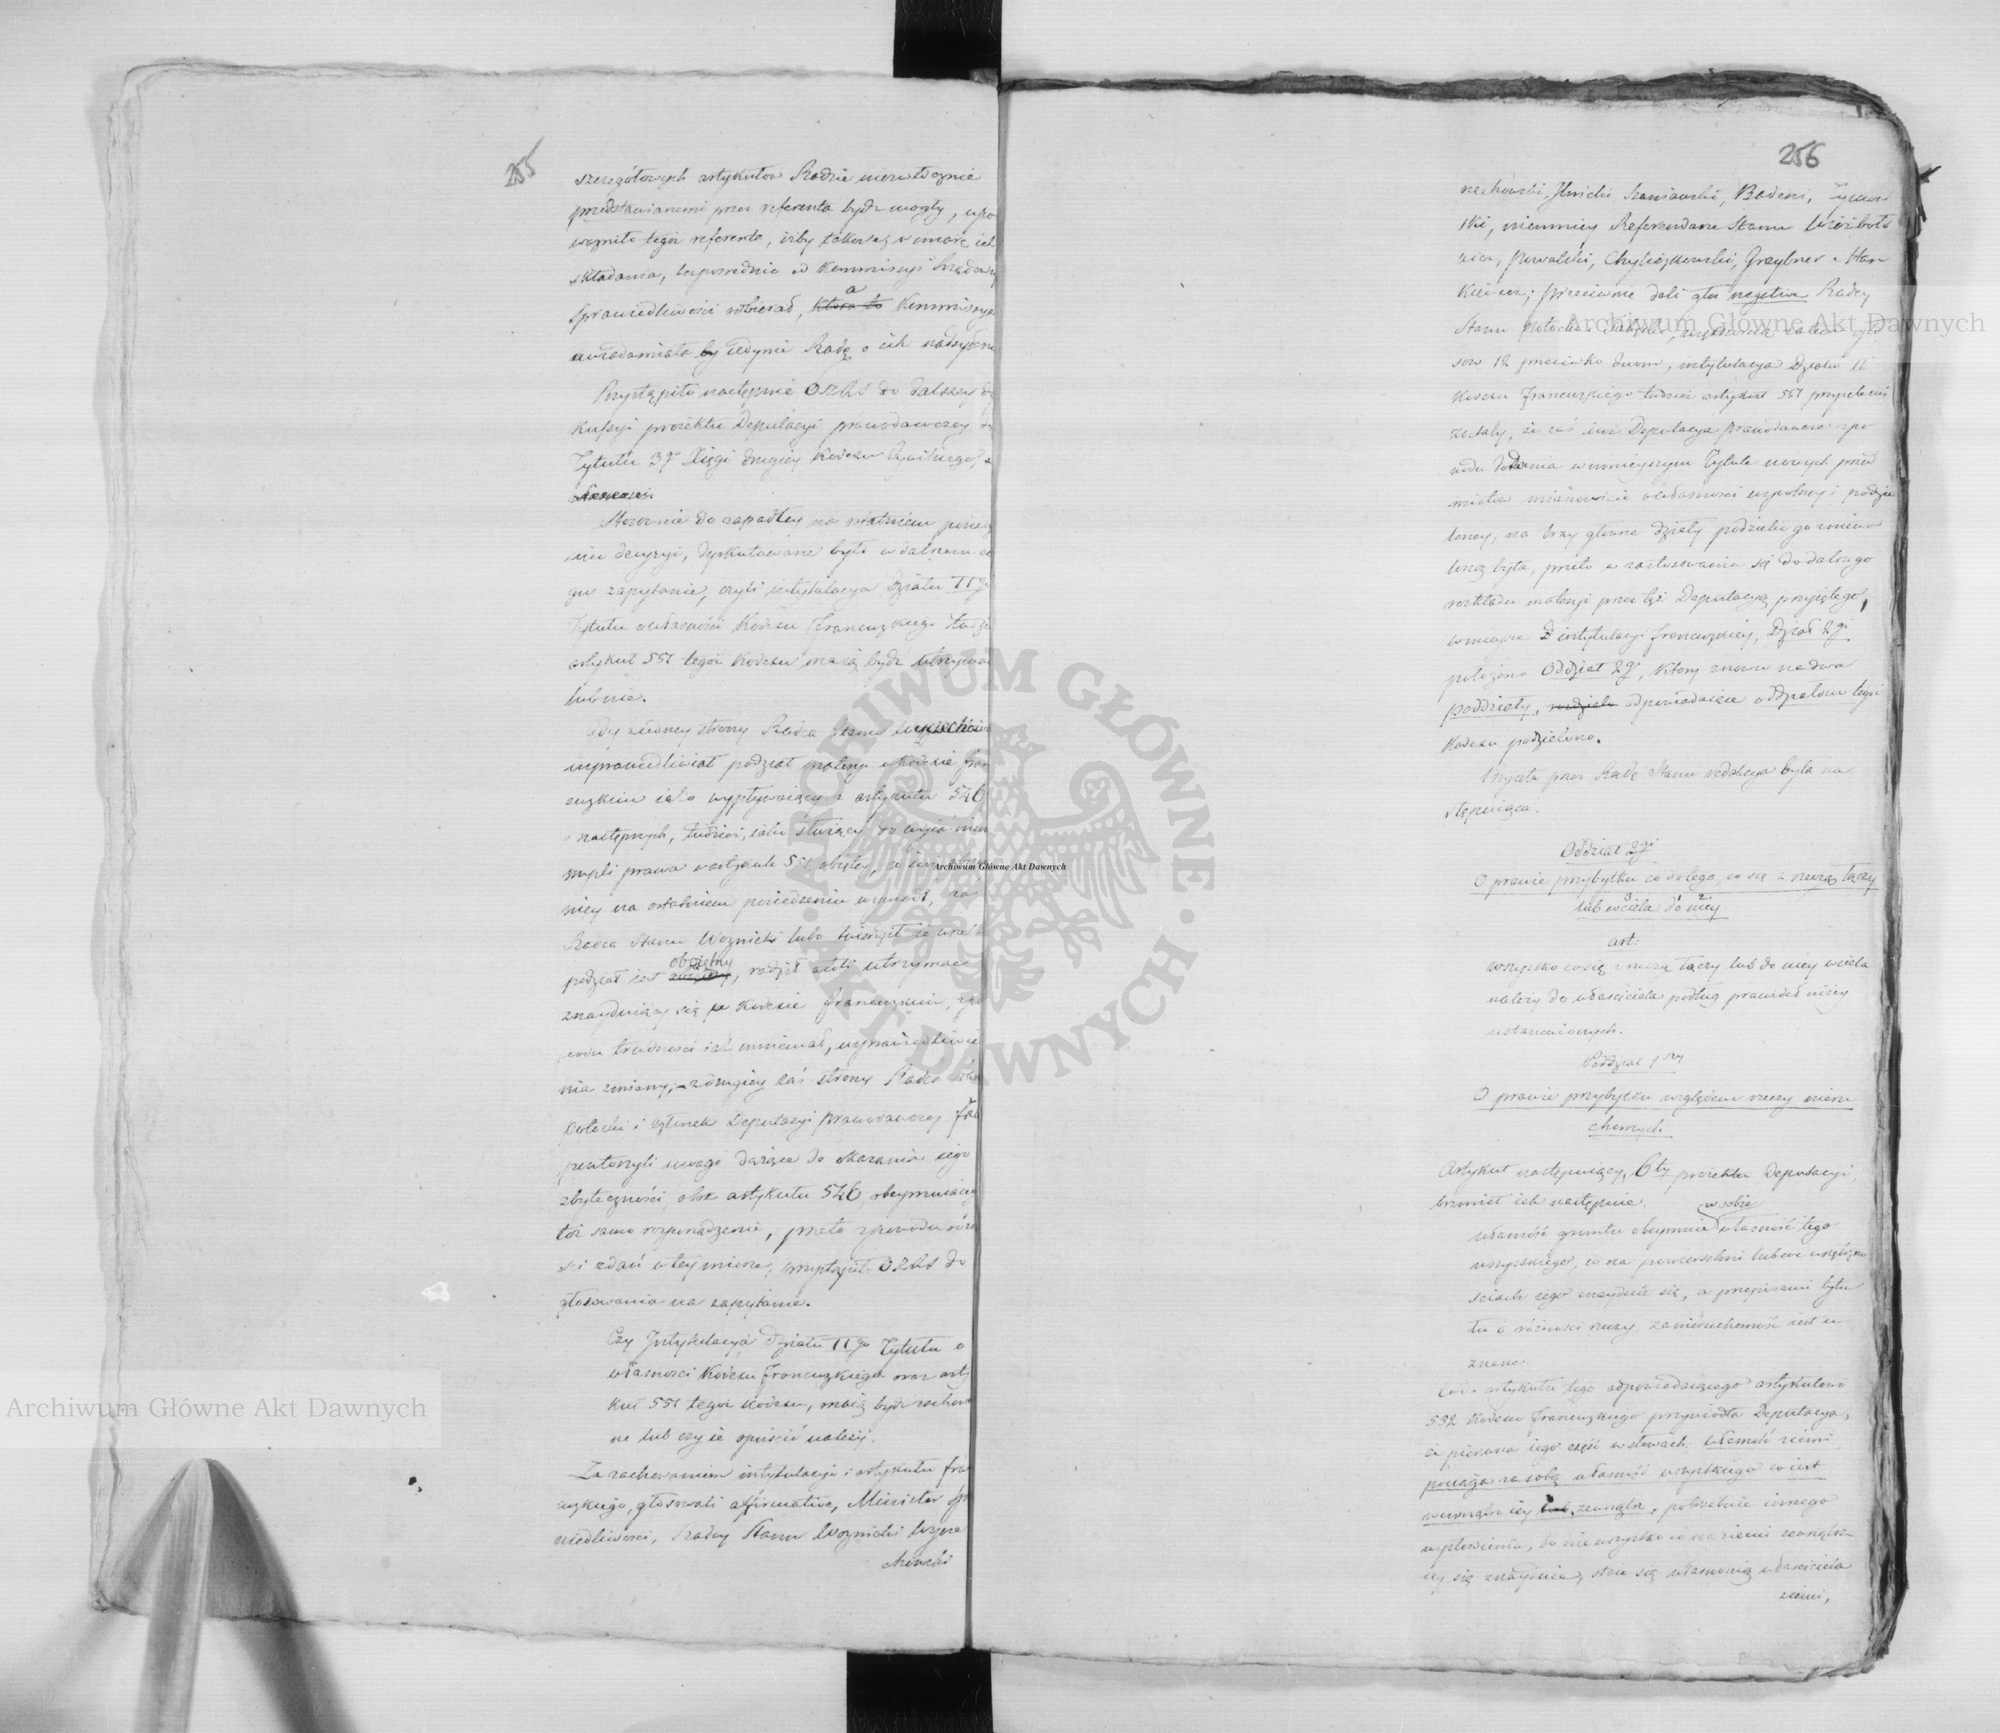 255
szczegółowych artykułów Radzie niezwłocznie
przedstawianemi przez referenta bydź mogły, upo
ważniło tegoż referenta, iżby takowe w miarę ich
składania, bezpośrednio od Kommissyi Rządowey
Sprawiedliwości odbierał, a Kommissya
uwiadomiała by iedynie Radę o ich nadesłaniu
Przystąpiło następnie do dalszey dy
kussyi proiektu Deputacyi prawodawczey do
Tytułu 3go Xięgi drugiey Kodexu Cywilnego, o
własności.
Stosownie do zapadłey na ostatniem posiedze
niu decyzyi, dyskutowane było w dalszem cią
gu zapytanie, czyli intytulacya Działu II go
Tytułu o własności Kodexu Francuzkiego tudzież
artykuł 551 tegoż Kodexu maią bydź utrzyma
lub nie.
Gdy z iedney strony Radca Stanu Wyczechow
usprawiedliwiał podział materyi w Kodexie fran
cuzkim iako wypływaiący z artykułu 546
i następnych, tudzież, iako służący do
myśli prawa w artykule 551 obiętey,
niey na ostatniem posiedzeniu wywiódł,
Radca Stanu Woznicki lubo twierdził że
podział iest obiętny, radził atoli utrzymać
znayduiący się w Kodexie francuzkim, zpo
wodu trudności iak mniemał, usprawiedliwie
nia zmiany; z drugiey zaś strony Radca Stanu
Potocki i członek Deputacyi prawodawczey
powtorzyli uwagi dążące do okazania iego
zbyteczności, obok artykułu 546, obeymuiącego
toż samo rozporządzenie, przeto zpowodu różno
ści zdań w tey mierze, przystąpiło do
głosowania na zapytanie.
Czy Intytulacya Działu II go Tytułu o
własności Kodexu Francuzkiego oraz arty
kuł 551 tegoż Kodexu, maią bydź zachowa
ne lub czy ie opuścić należy.
Za zachowaniem intytulacyi i artykułu fran
cuzkiego, głosowali affirmative, Minister Spra
wiedliwości, Radcy Stanu Woznicki Wycze
chowski
256
nechowski, Hincki Szaniawski, Badeni,
ski, niemniey Referendarze Stanu
Suwalski, Chyliczkowski, Graybner
kiewicz; przeciwnie dali głos negative Radcy
Stanu Potocki
sow 12 przeciwko dwom, intytulacya Działu II
Kodexu Francuzkiego tudzież artykuł 551 przyięte
zostały, że zaś iuż Deputacya prawodawcza zpo
wodu dodania w ninieyszym Tytule nowych przed
miotów mianowicie o własności wspólney i podzie
loney, na trzy główne działy podzielić go
była, przeto w zastosowaniu się do dalszego
rozkładu materyi przez tęż Deputacyą przyiętego,
w mieysce intytulacyi francuzkiey, Dział 2gi
położono Oddział 2gi, ktory znowu na dwa
poddziały, odpowiadaiące oddziałom tegoż
Kodexu podzielono.
Przyięta przez Radę Stanu redakcya była na
stępuiąca.
Oddział 2gi
O prawie przybytku co do tego, co się z rzeczą łączy
lub wciela do niey
art:
Wszystko co się z rzeczą łączy lub do niey wciela
należy do właściciela podług prawideł niżey
ustanowionych.
Poddział 1szy
O prawie przybytku względem rzeczy nieru
chomych.
Artykuł następuiący, 6ty proiektu Deputacyi,
brzmiał iak następuie.
własność gruntu obeymuie w sobie własność tego
wszystkiego, co na powierzchni lub we wnętrzno
ściach iego znayduie się, a przepisami tytu
łu o różności rzeczy, za nieruchomość iest u
znane.
Co do artykułu tego odpowiadaiącego artykułowi
552 Kodexu Francuzkiego przywiodła Deputacya,
że pierwsza iego część w słowach: własność ziemi
pociąga za sobą własność wszystkiego co iest
wewnątrz iey lub zewnątrz, potrzebuie innego
wysłowienia, bo nie wszystko co na ziemi zewnątrz
iey się znayduie, staie się własnością właściciela
ziemi,